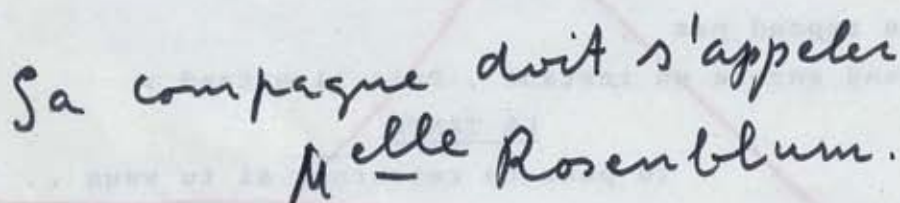 Sa compagne doit s'appeler
Melle Rosenblum.